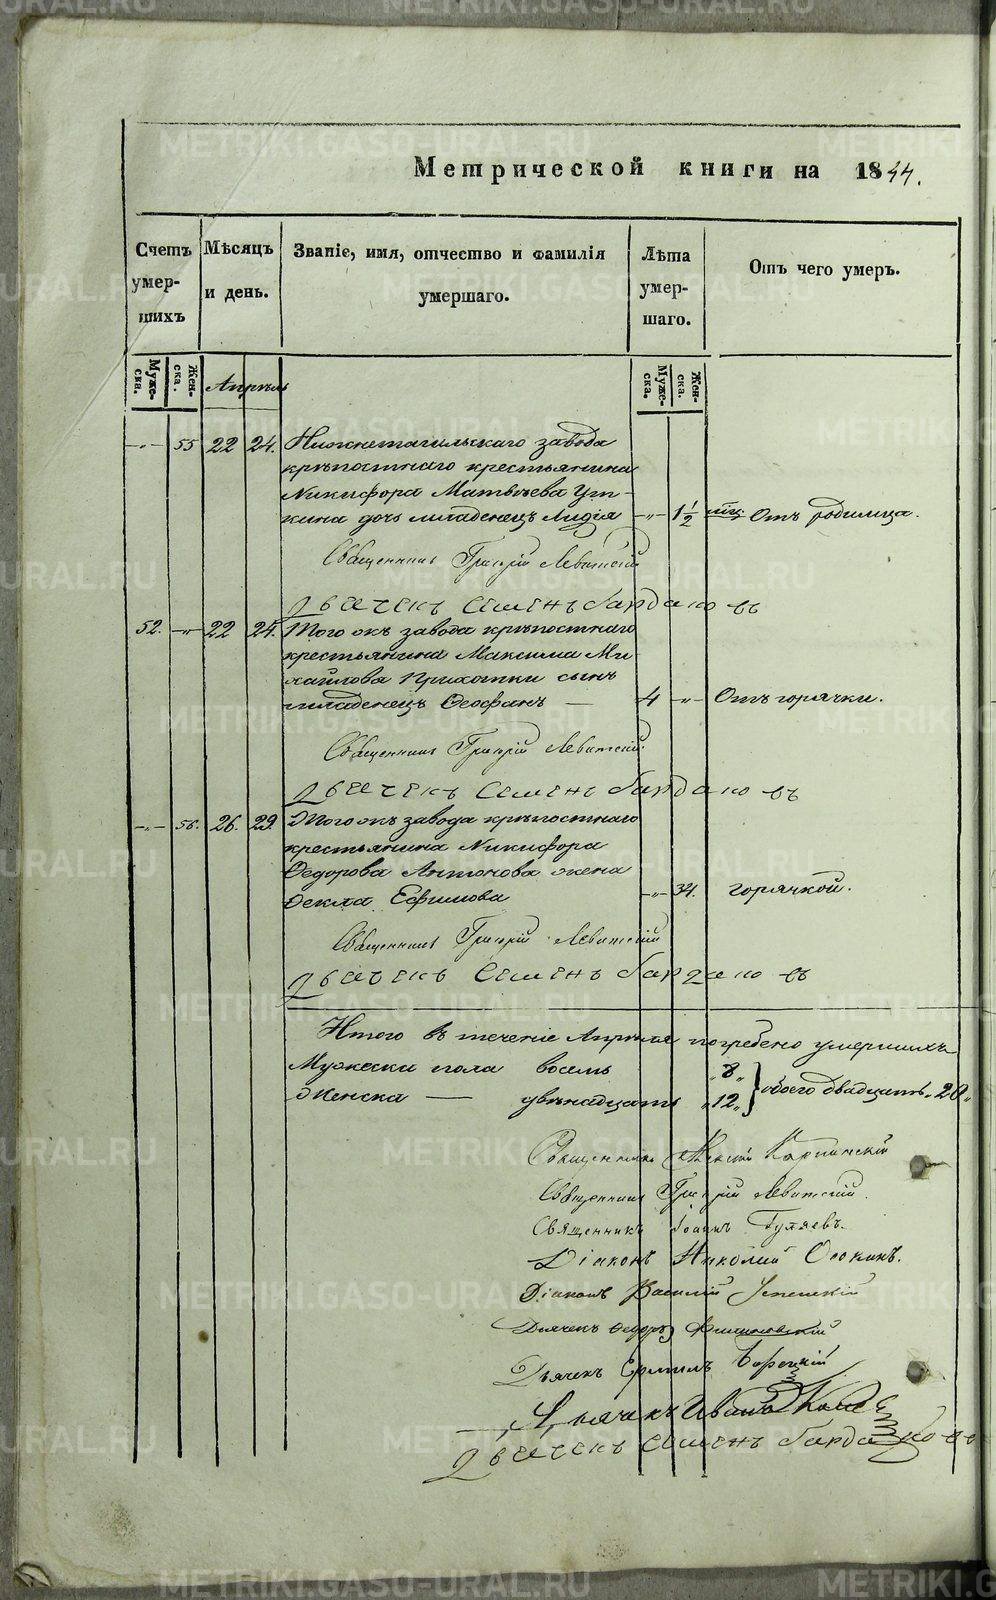 Метрической книги на 1844.
Счетъ умершихъ
Мѣсяцъ и день.
Званіе, имя, отчество и фамилія умершаго.
Лѣта умершаго.
Отъ чего умеръ.
Мужеска.
Женска.
Апрель
Мужеска.
Женска.
-"- 55 22 24. Нижнетагильскаго завода
крѣпостнаго крестьянина
Никифора Матвѣева Ут-
кина дочь младенецъ Лидія -"- 1 1/2 мц: Отъ родимца.
Священникъ Григорій Левитскій
Дьячекъ Семенъ
52. -"- 22 24. Того жъ завода крѣпостнаго
крестьянина Максима Ми
хайлова сынъ
младенецъ Ѳеофанъ — 4 -"- Отъ горячки.
Священникъ Григорій Левитскій
Дьячекъ Семенъ
-"- 56. 26. 29. Того жъ завода крѣпостнаго
крестьянина Никифора
Ѳедорова Антонова жена
Ѳекла Ефимова -"- 34. горячкой.
Священникъ Григорій Левитскій
Дьячекъ Семенъ
Итого въ теченіе Апреля погребено умершихъ
Мужеска пола восемь „8„
Женска — двѣнадцать „12„ обоего двадцать „20„
Священникъ Карпинскій
Священникъ Григорій Левитскій.
Священникъ Іоаннъ Гуляевъ.
Діаконъ Николай Осокинъ.
Діаконъ Василій Успенскій
Дьячекъ Ѳедоръ
Дьячекъ Ермилъ
Дьячекъ Иванъ
Дьячекъ Семенъ
METRIKI.GASO-URAL.RU